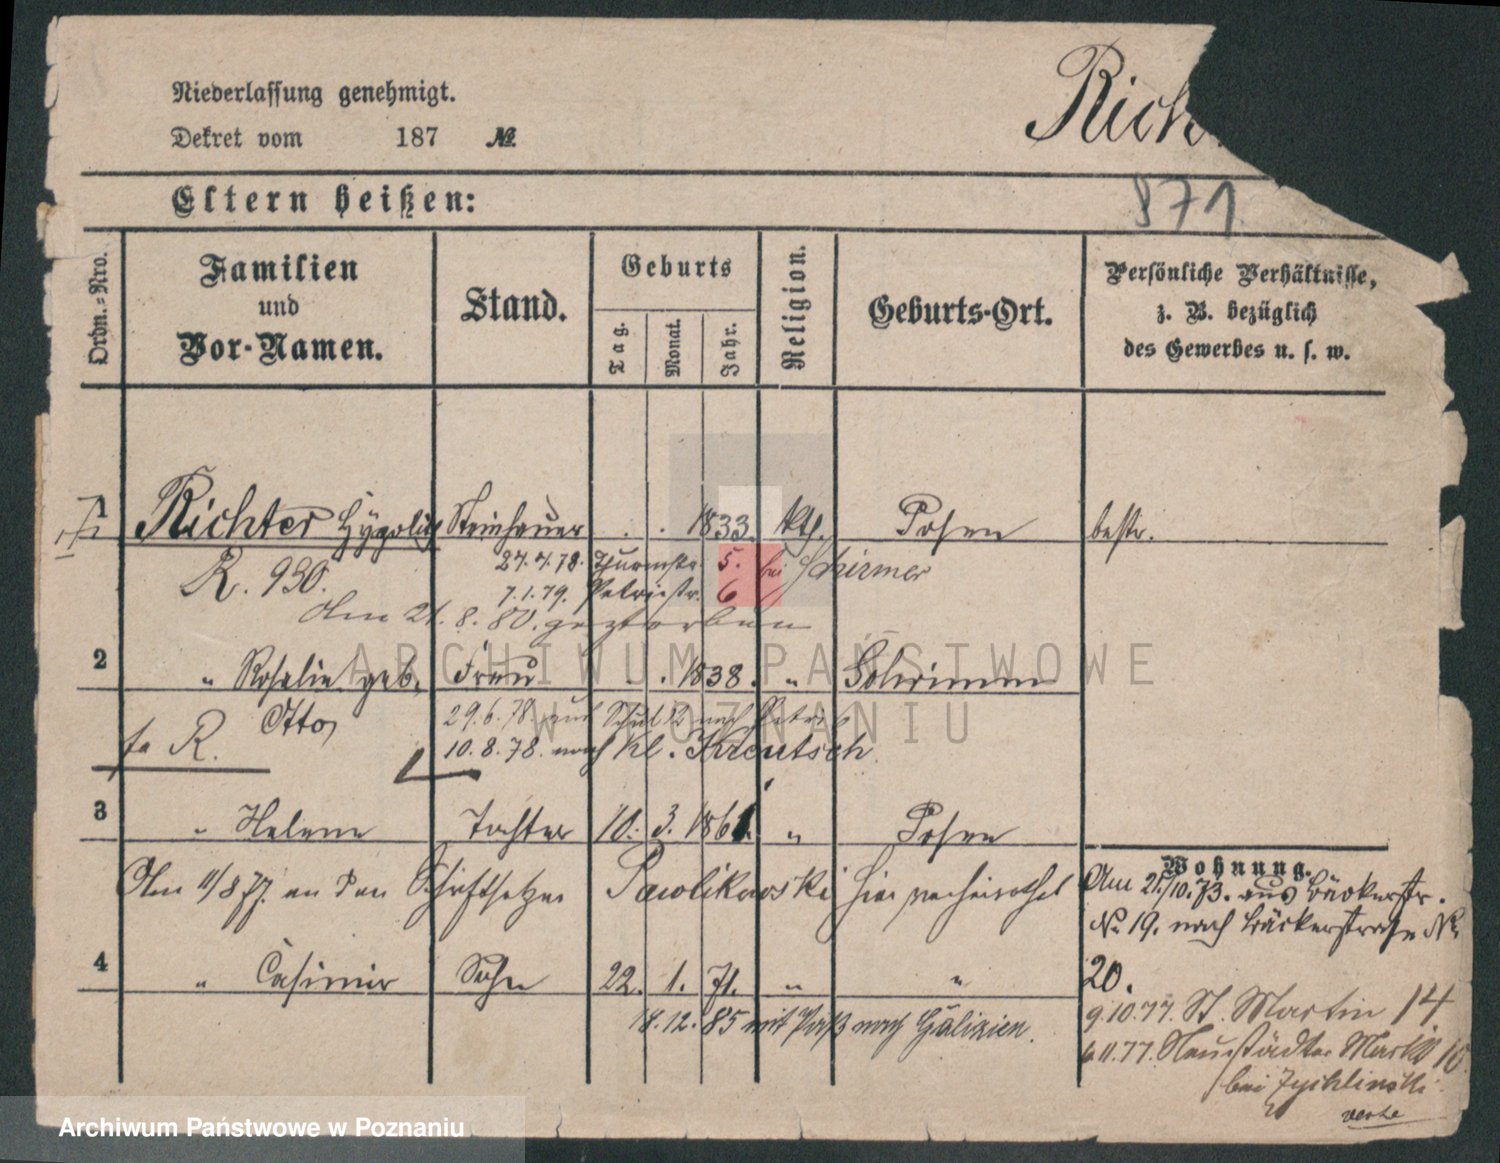 Niederlassung genehmigt.
Dekret vom 187 №
Rich
871
Eltern heißen:
Ordn.-Nro.
Familien
und
Vor-Namen.
Stand.
Geburts
Tag.
Monat.
Jahr.
Religion.
Geburts-Ort.
Persönliche Verhältnisse,
z. B. bezüglich
des Gewerbes u. s. w.
1 Richter Hypolit Steinhauer . . 1833. kth. Posen bestr.
R. 930. 27.4.78. Thurmstr. 5. bei Schirmer
7.1.79. Petristr. 6
Am 21.8.80. gestorben
2 " Rosalie geb. Frau . 1838. " Schrimm
Otto 29.6.78. aus Schulstr. nach Petri 6
R. 10.8.78. nach Kl. Kreutsch.
3 " Helene Tochter 10. 3. 1861. " Posen
Am 11/8 77. an den Schriftsetzer Pawlikowski hier verheirathet
4 " Casimir Sohn 22. 1. 71. " "
12. 85 mit Paß nach Galizien.
Wohnung.
Am 21/10.73. aus Bäckerstr.
No 19. nach Bäckerstraße No
20.
9.10.77. St. Martin 14
6.11.77. Neustädter Markt 10
bei Zychlinski
verte
ARCHIWUM PAŃSTWOWE
W POZNANIU
Archiwum Państwowe w Poznaniu